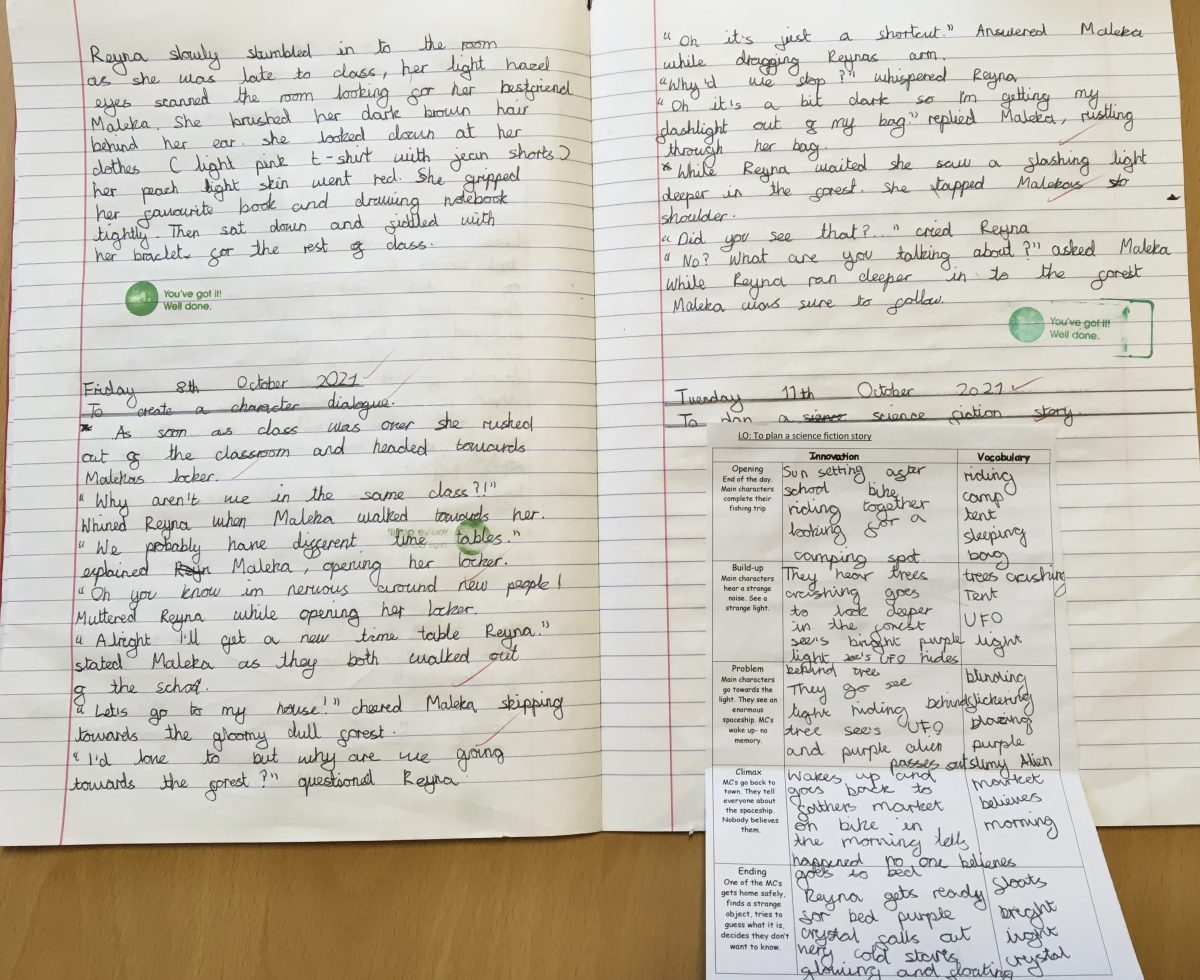 Reyna slowly stumbled in to the room
as she was late to class, her light hazel
eyes scanned the room looking for her bestfriend
Maleka. She brushed her dark brown hair
behind her ear. she looked down at her
clothes ( light pink t-shirt with jean shorts)
her peach light skin went red. She gripped
her favourite book and drawing notebook
tightly. Then sat down and fiddled with
her braclet for the rest of class.
You've got it!
Well done.
Friday 8th October 2021
To create a character dialogue.
* As soon as class was over she rushed
out of the classroom and headed towards
Malekas locker.
"Why aren't we in the same class?!"
Whined Reyna when Maleka walked towards her.
"We probably have different time tables."
explained Maleka, opening her locker.
"Oh you know im nervous around new people!
Muttered Reyna while opening her locker.
"Alright I'll get a new time table Reyna."
stated Maleka as they both walked out
of the school.
"Let's go to my house!" cheered Maleka skipping
towards the gloomy dull forest.
"I'd love to but why are we going
towards the forest?" questioned Reyna
"Oh it's just a shortcut." Answered Maleka
while dragging Reynas arm.
"Why'd we stop?" whispered Reyna
"Oh it's a bit dark so I'm getting my
flashlight out of my bag." replied Maleka, rustling
through her bag.
* While Reyna waited she saw a flashing light
deeper in the forest. She tapped Malekas
shoulder.
"Did you see that?..." cried Reyna
"No? What are you talking about?" asked Maleka
While Reyna ran deeper in to the forest
Maleka was sure to follow.
You've got it!
Well done.
Tuesday 11th October 2021
To plan a science fiction story
LO: To plan a science fiction story
Innovation
Vocabulary
Opening
End of the day.
Main characters
complete their
fishing trip
Sun setting after
school bike
riding together
looking for a
camping spot
riding
camp
tent
sleeping
bag
Build-up
Main characters
hear a strange
noise. See a
strange light.
They hear trees
crushing goes
to look deeper
in the forest
see's bright purple
light UFO hides
behind tree
trees crushing
Tent
UFO
light
Problem
Main characters
go towards the
light. They see an
enormous
spaceship. MC's
wake up- no
memory.
They go see
light behind
tree see's UFO
and purple alien
passes out
blinding
flickering
blazing
purple
slimy Alien
Climax
MC's go back to
town. They tell
everyone about
the spaceship.
Nobody believes
them.
Wakes up and
goes back to
market
on bike in
the morning tells
happened no one believes
market
believes
morning
Ending
One of the MC's
gets home safely,
finds a strange
object, tries to
guess what it is,
decides they don't
want to know.
goes to bed
Reyna gets ready
for bed purple
crystal falls out
very cold starts
glowing and floating
floats
bright
light
crystal